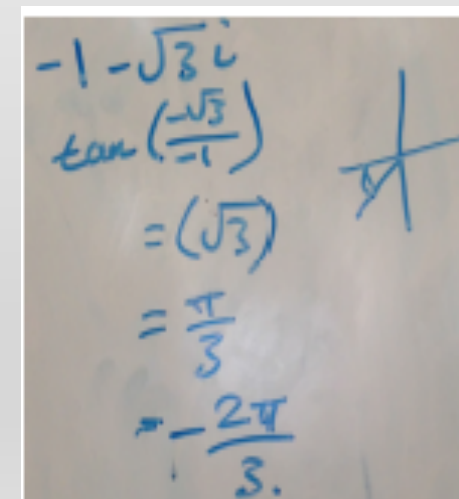 -1 - √3 i
tan (-√3 / -1)
= (√3)
= π/3
= - 2π/3.